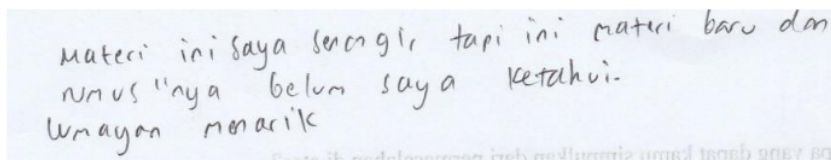 Materi ini saya senengi, tapi ini materi baru dan
rumus"nya belum saya ketahui.
Lumayan menarik